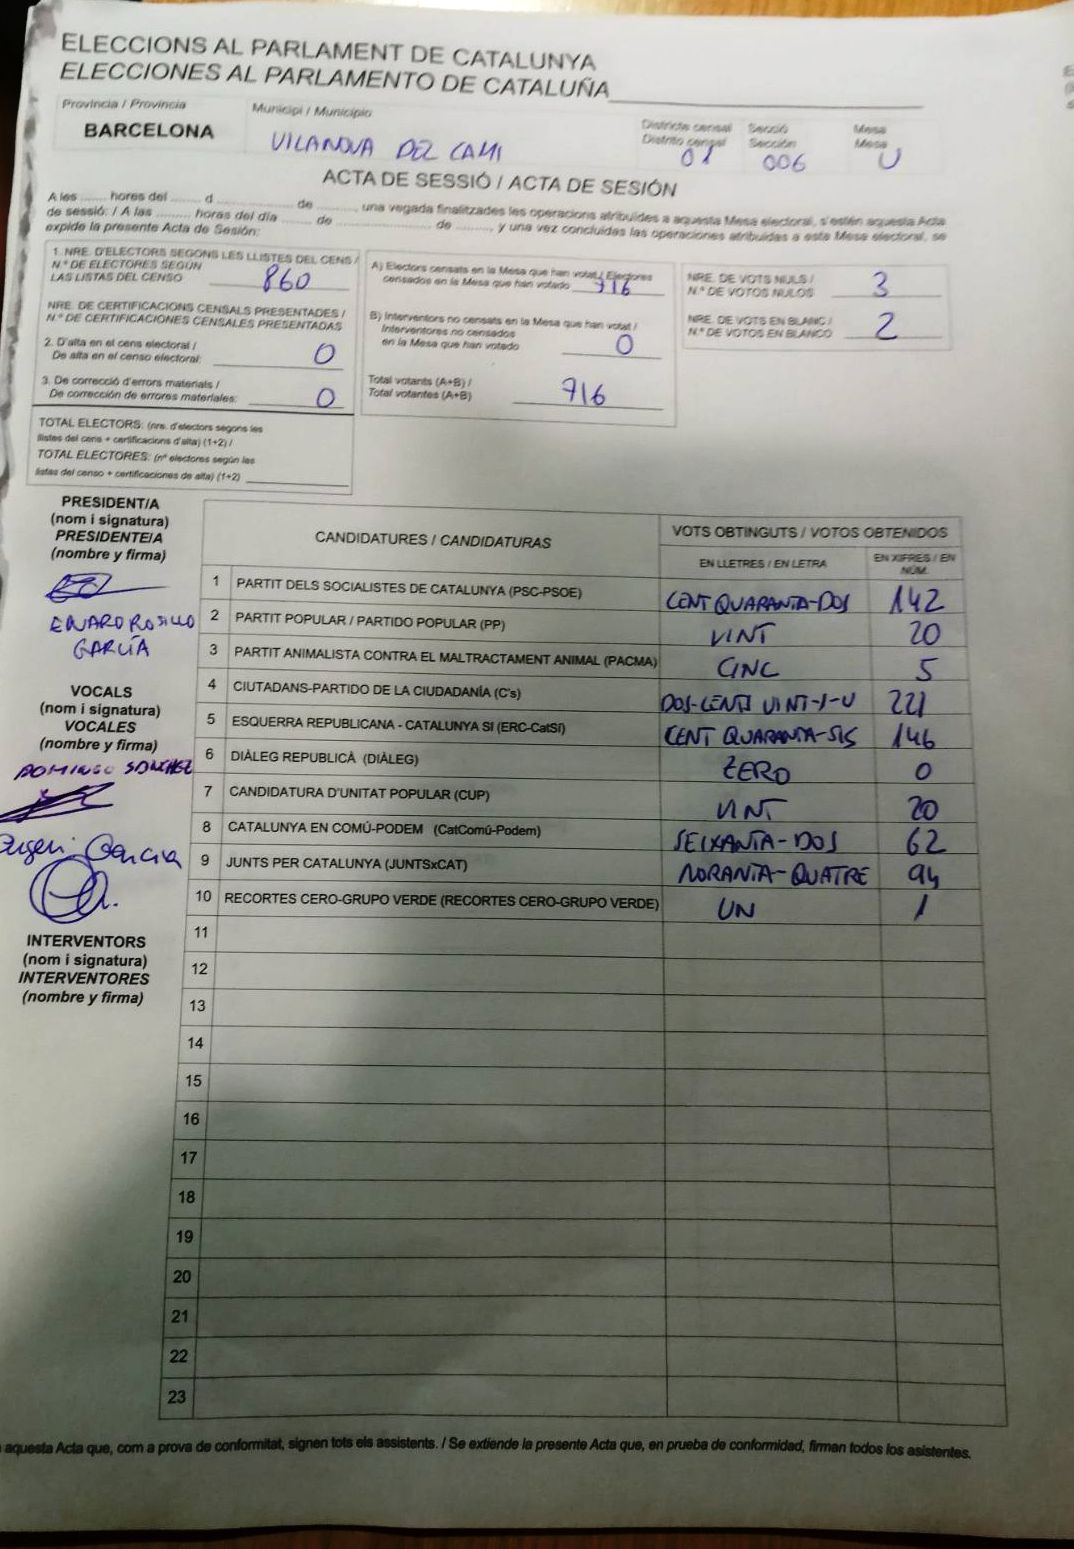 ELECCIONS AL PARLAMENT DE CATALUNYA
ELECCIONES AL PARLAMENTO DE CATALUÑA
Província / Provincia
BARCELONA
Municipi / Municipio
VILANOVA DEL CAMI
Districte censal
Distrito censal
01
Secció
Sección
006
Mesa
Mesa
U
ACTA DE SESSIÓ / ACTA DE SESIÓN
A les ....... hores del ....... d ................... de ........., una vegada finalitzades les operacions atribuïdes a aquesta Mesa electoral, s'estén aquesta Acta
de sessió: / A las ......... horas del día ........ de ....................... de ........, y una vez concluidas las operaciones atribuidas a esta Mesa electoral, se
expide la presente Acta de Sesión:
1. NRE. D'ELECTORS SEGONS LES LLISTES DEL CENS /
N.º DE ELECTORES SEGÚN
LAS LISTAS DEL CENSO 860
NRE. DE CERTIFICACIONS CENSALS PRESENTADES /
N.º DE CERTIFICACIONES CENSALES PRESENTADAS
2. D'alta en el cens electoral /
De alta en el censo electoral: 0
3. De correcció d'errors materials /
De corrección de errores materiales: 0
TOTAL ELECTORS: (nre. d'electors segons les
llistes del cens + certificacions d'alta) (1+2) /
TOTAL ELECTORES: (nº electores según las
listas del censo + certificaciones de alta) (1+2)
A) Electors censats en la Mesa que han votat / Electores
censados en la Mesa que han votado 716
B) Interventors no censats en la Mesa que han votat /
Interventores no censados
en la Mesa que han votado 0
Total votants (A+B) /
Total votantes (A+B) 716
NRE. DE VOTS NULS /
N.º DE VOTOS NULOS 3
NRE. DE VOTS EN BLANC /
N.º DE VOTOS EN BLANCO 2
PRESIDENT/A
(nom i signatura)
PRESIDENTE/A
(nombre y firma)
EDUARD ROSILLO
GARCÍA
VOCALS
(nom i signatura)
VOCALES
(nombre y firma)
DOMINGO SANCHEZ
Eugeni Garcia
INTERVENTORS
(nom i signatura)
INTERVENTORES
(nombre y firma)
CANDIDATURES / CANDIDATURAS
VOTS OBTINGUTS / VOTOS OBTENIDOS
EN LLETRES / EN LETRA
EN XIFRES / EN
NÚM.
1 PARTIT DELS SOCIALISTES DE CATALUNYA (PSC-PSOE) CENT QUARANTA-DOS 142
2 PARTIT POPULAR / PARTIDO POPULAR (PP) VINT 20
3 PARTIT ANIMALISTA CONTRA EL MALTRACTAMENT ANIMAL (PACMA) CINC 5
4 CIUTADANS-PARTIDO DE LA CIUDADANÍA (C's) DOS-CENTS VINT-I-U 221
5 ESQUERRA REPUBLICANA - CATALUNYA SI (ERC-CatSí) CENT QUARANTA-SIS 146
6 DIÀLEG REPUBLICÀ (DIÀLEG) ZERO 0
7 CANDIDATURA D'UNITAT POPULAR (CUP) VINT 20
8 CATALUNYA EN COMÚ-PODEM (CatComú-Podem) SEIXANTA-DOS 62
9 JUNTS PER CATALUNYA (JUNTSxCAT) NORANTA-QUATRE 94
10 RECORTES CERO-GRUPO VERDE (RECORTES CERO-GRUPO VERDE) UN 1
11
12
13
14
15
16
17
18
19
20
21
22
23
aquesta Acta que, com a prova de conformitat, signen tots els assistents. / Se extiende la presente Acta que, en prueba de conformidad, firman todos los asistentes.